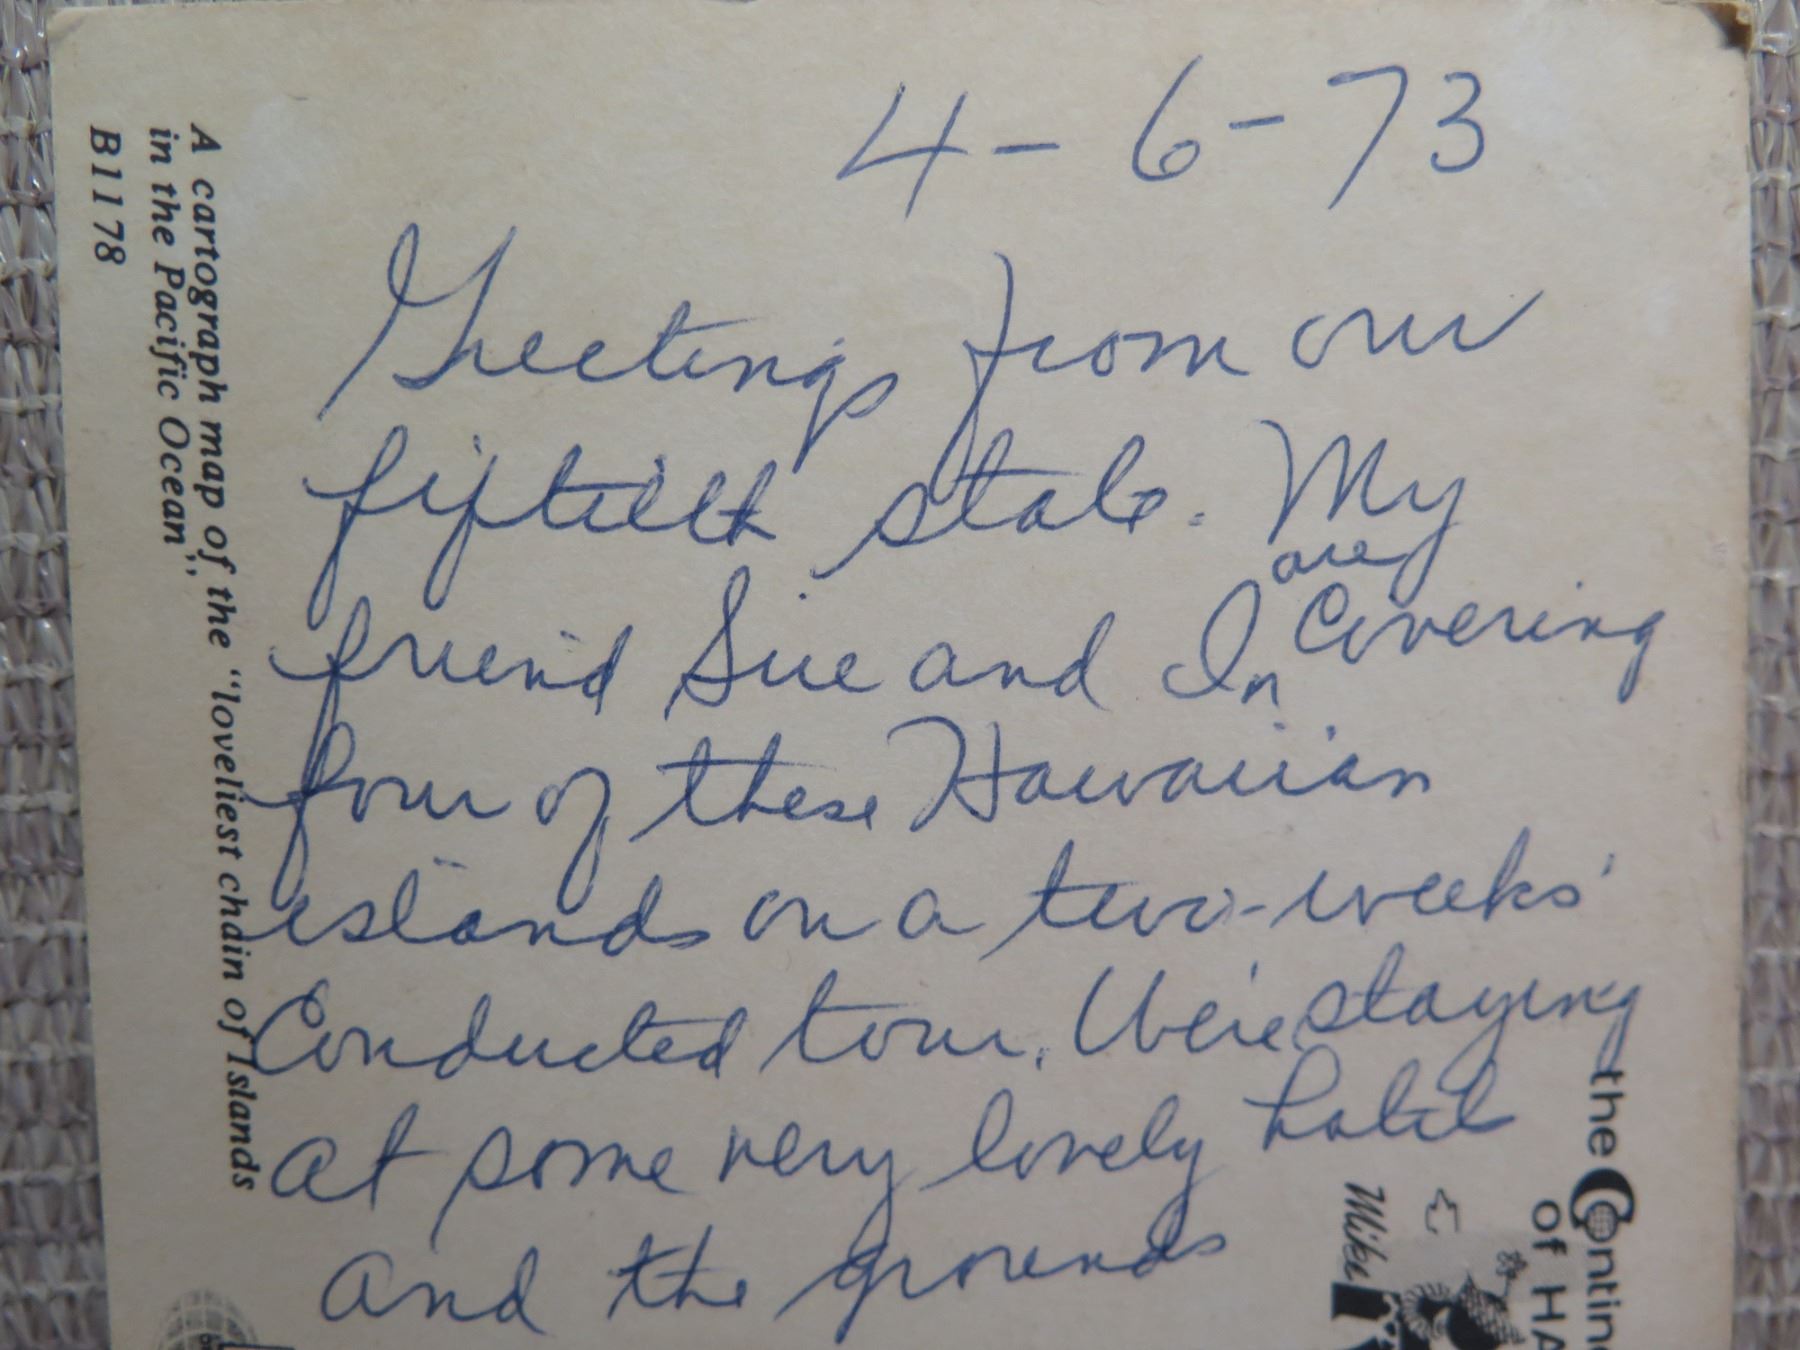 4-6-73
Greetings from our
fiftieth state. My
friend Sue and I are covering
four of these Hawaiian
islands on a two-weeks'
Conducted tour. We're staying
at some very lovely hotel
and the grounds
A cartograph map of the "loveliest chain of Islands
in the Pacific Ocean".
B1178
the Contin
OF HA
Mike